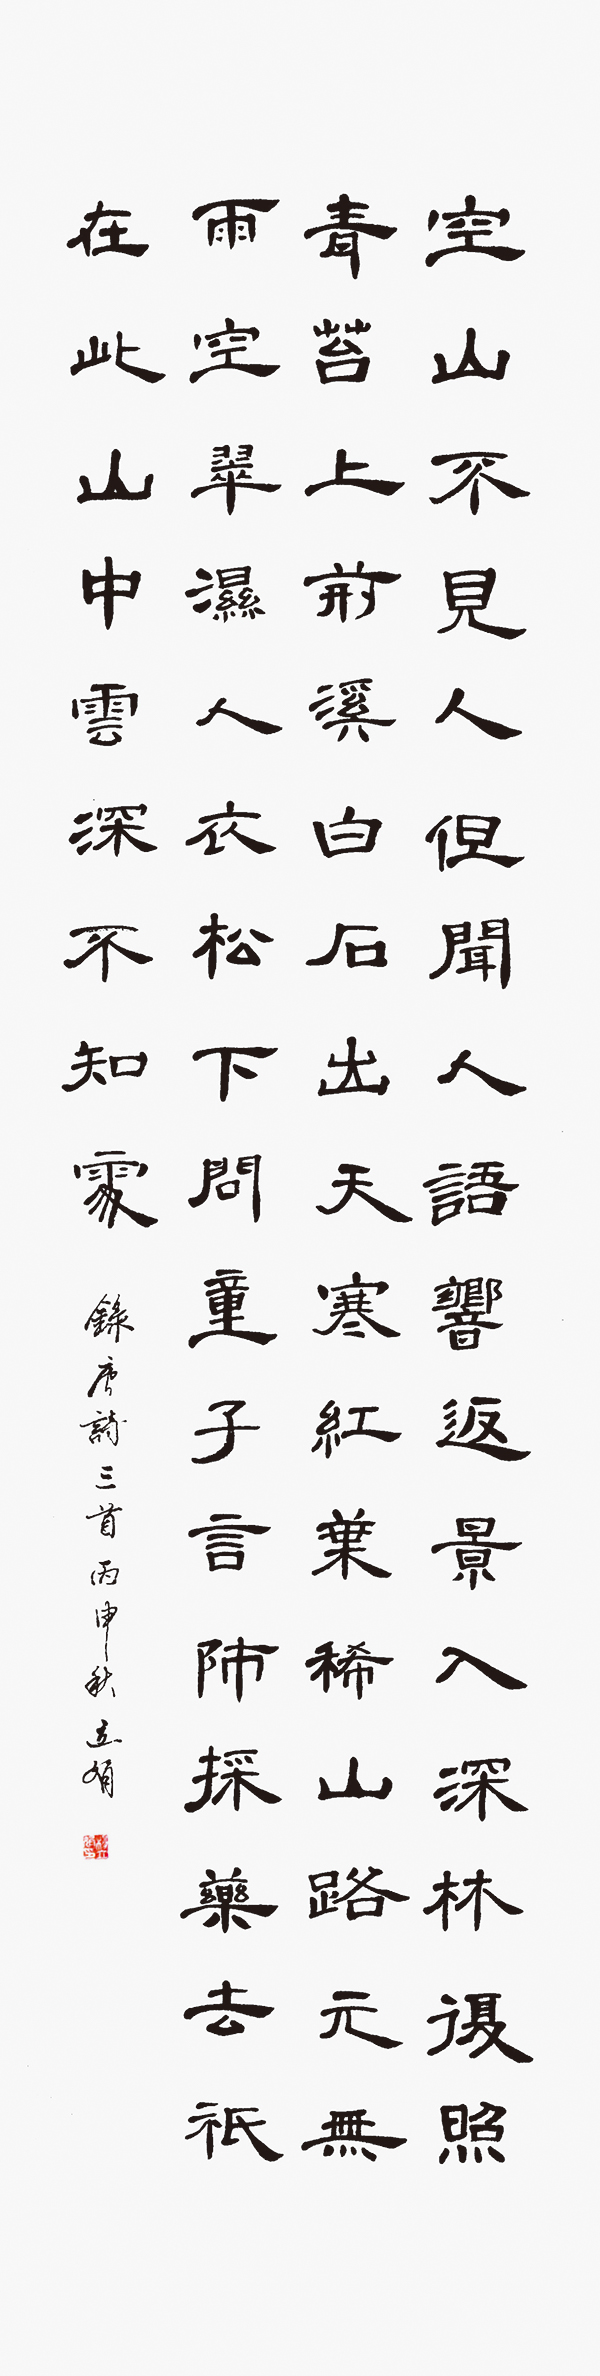 空山不見人但聞人語響返景入深林復照
青苔上前溪白石出天寒紅葉稀山路元無
雨空翠濕人衣松下問童子言師採藥去祇
在此山中雲深不知處
錄唐詩三首丙申秋